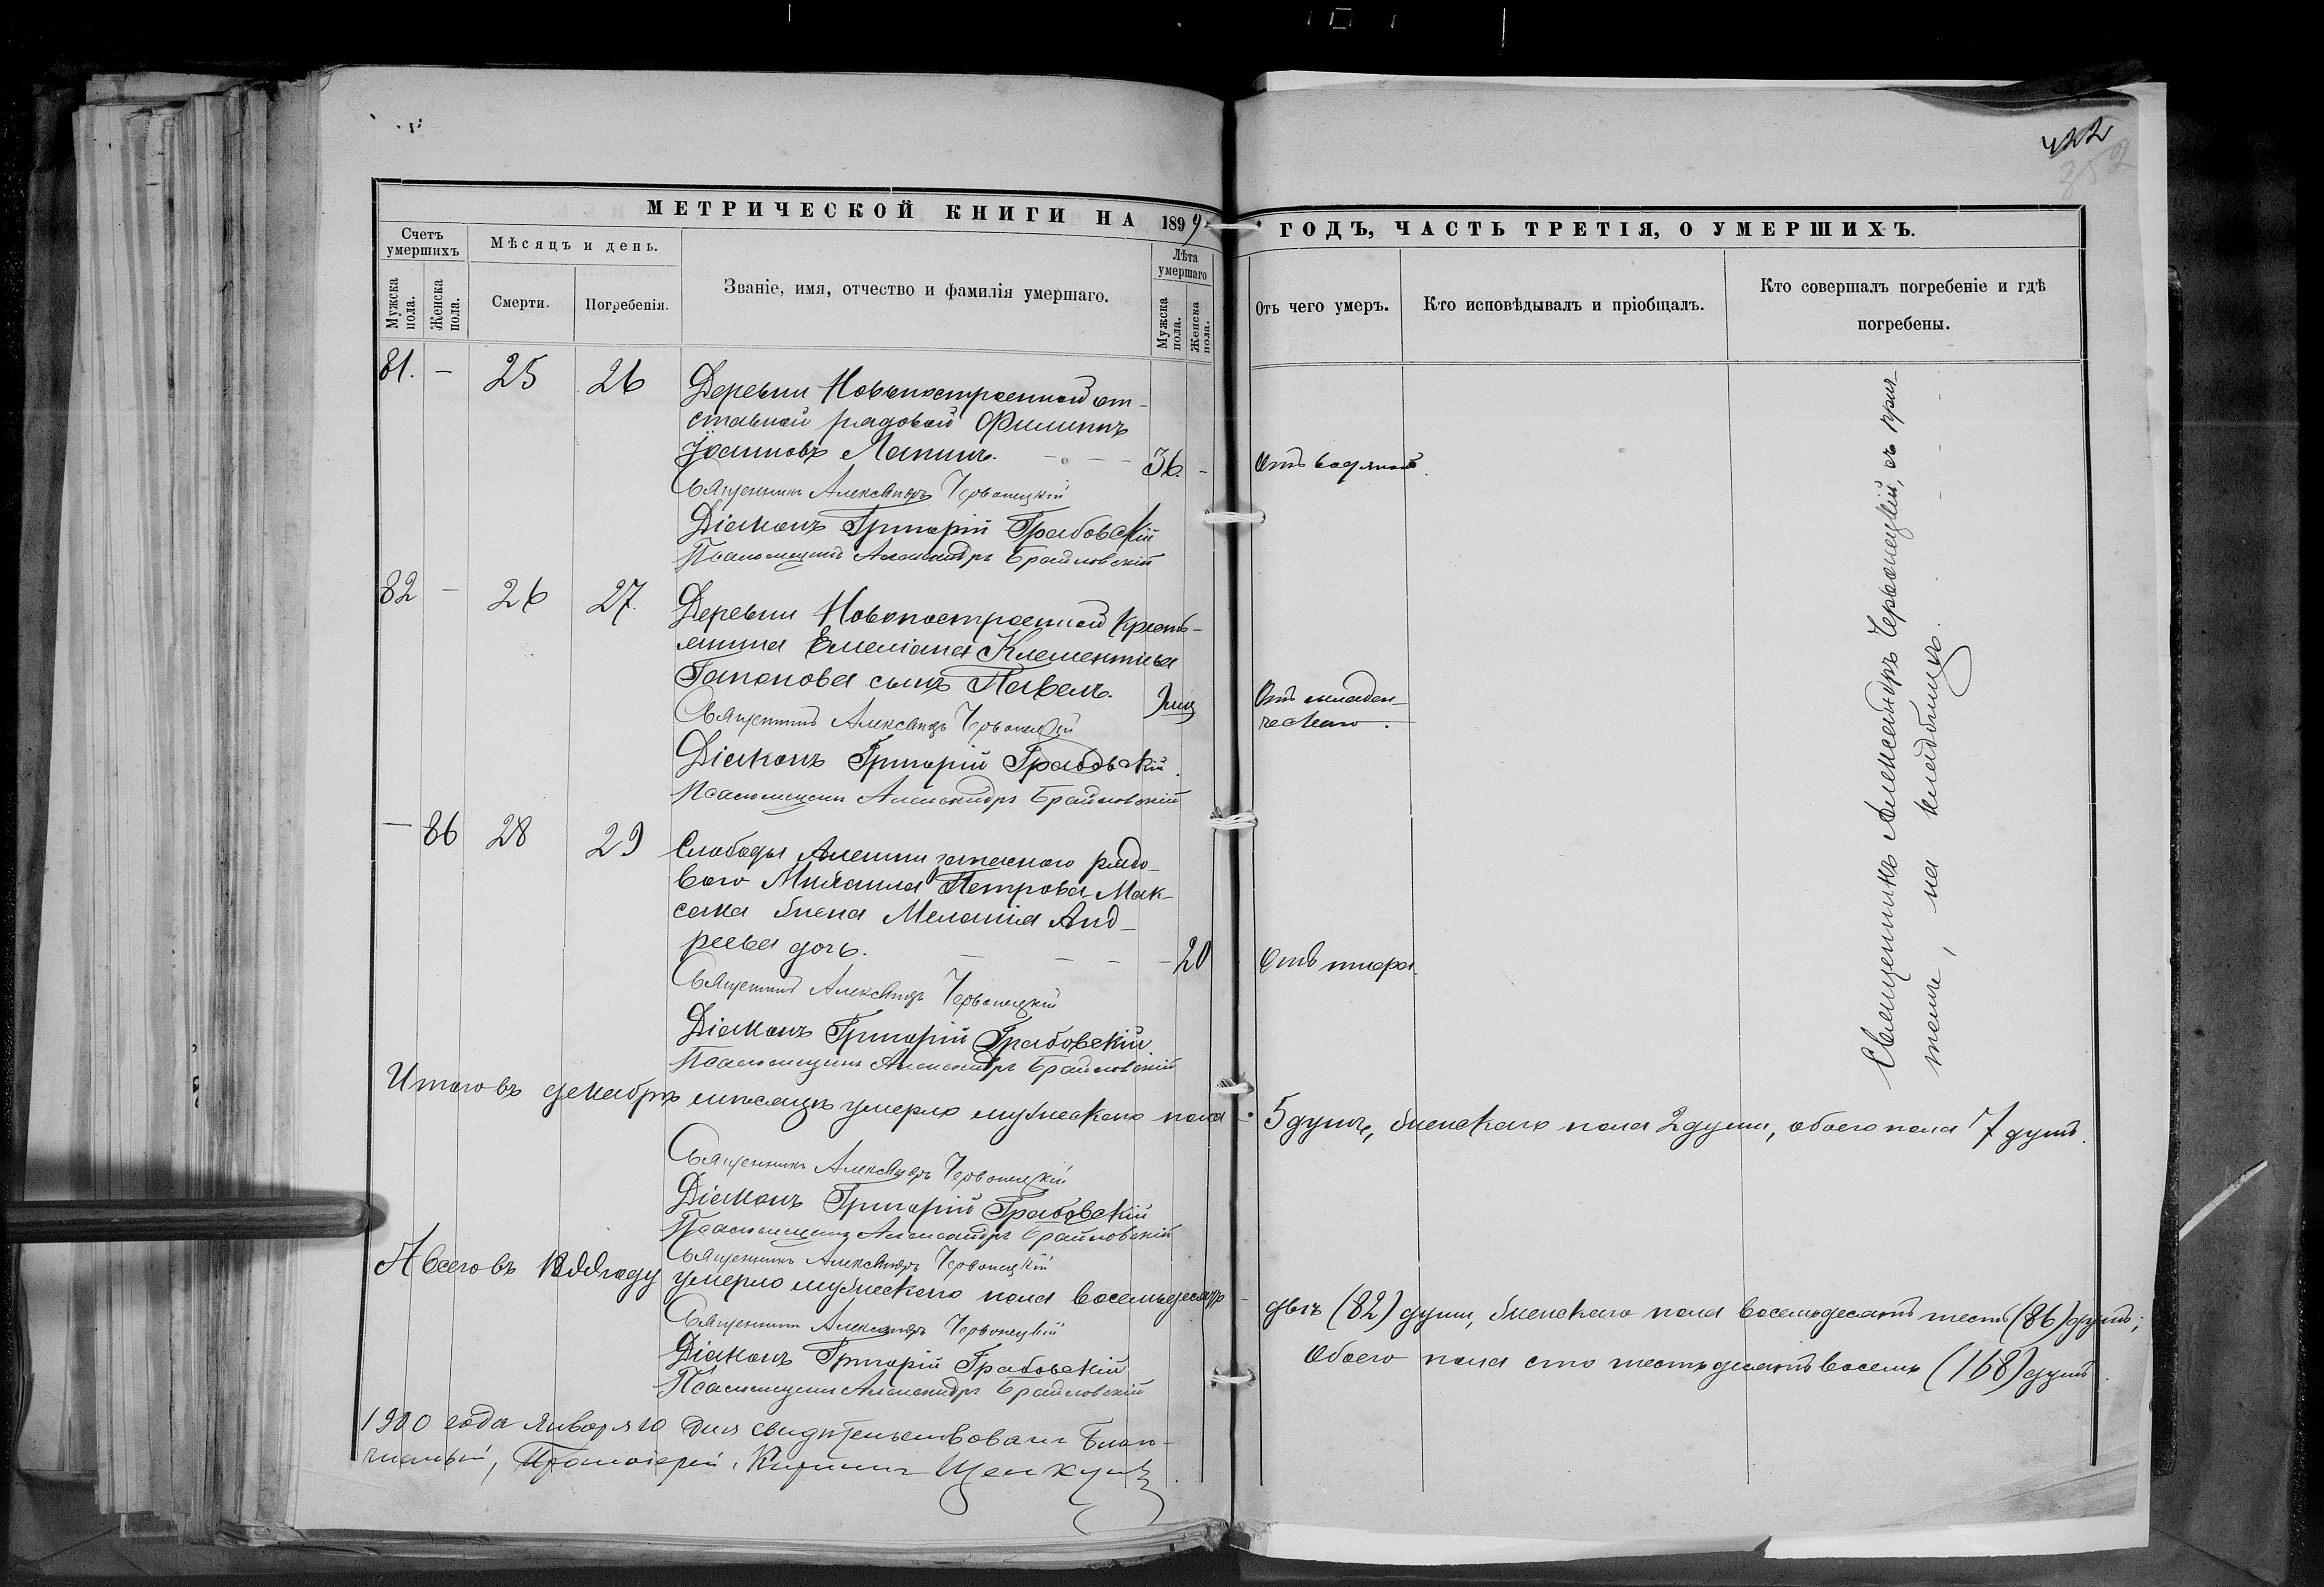 422
352
МЕТРИЧЕСКОЙ КНИГИ НА 1899
ГОДЪ, ЧАСТЬ ТРЕТІЯ, О УМЕРШИХЪ.
Счетъ умершихъ
Мужска пола.
Женска пола.
Мѣсяцъ и день.
Смерти.
Погребенія.
Званіе, имя, отчество и фамилія умершаго.
Лѣта умершаго
Мужска пола.
Женска пола.
Отъ чего умеръ.
Кто исповѣдывалъ и пріобщалъ.
Кто совершалъ погребеніе и гдѣ
погребены.
81. - 25 26 Деревни Новопостроенной от-
ставной рядовой Филиппъ
Іоанновъ Лапинъ. 36. - Отъ водяной.
Священникъ Александръ Червонецкій
Діаконъ Григорій Грабовскій
Псаломщикъ Александръ Брайловскій
82 - 26 27. Деревни Новопостроенной кресть-
янина Емеліана Клементіева
Гапонова сынъ Павелъ. Отъ младен-
ческаго.
Священникъ Александръ Червонецкій
Діаконъ Григорій Грабовскій.
Псаломщикъ Александръ Брайловскій
- 86 28 29 Слободы Алешни запаснаго рядо-
вого Михаила Петрова Мак-
сака жена Меланія Анд-
реева дочь. - 20 Отъ тифа.
Священникъ Александръ Червонецкій
Діаконъ Григорій Грабовскій
Псаломщикъ Александръ Брайловскій
Священникъ Александръ Червонецкій, съ прич-
томъ, на кладбищѣ.
Итого въ декабрѣ мѣсяцѣ умерло мужескаго пола - 5 душъ, женскаго пола 2 души, обоего пола 7 душъ.
Священникъ Александръ Червонецкій
Діаконъ Григорій Грабовскій
Псаломщикъ Александръ Брайловскій
А всего въ 1899 году умерло мужескаго пола восемьдесятъ - двѣ (82) души, женскаго пола восемьдесятъ шесть (86) душъ;
Обоего пола сто шестьдесятъ восемь (168) душъ.
Священникъ Александръ Червонецкій
Священникъ Александръ Червонецкій
Діаконъ Григорій Грабовскій
Псаломщикъ Александръ Брайловскій
1900 года Января 10 дня свидѣтельствовалъ Благо-
чинный, Протоіерей